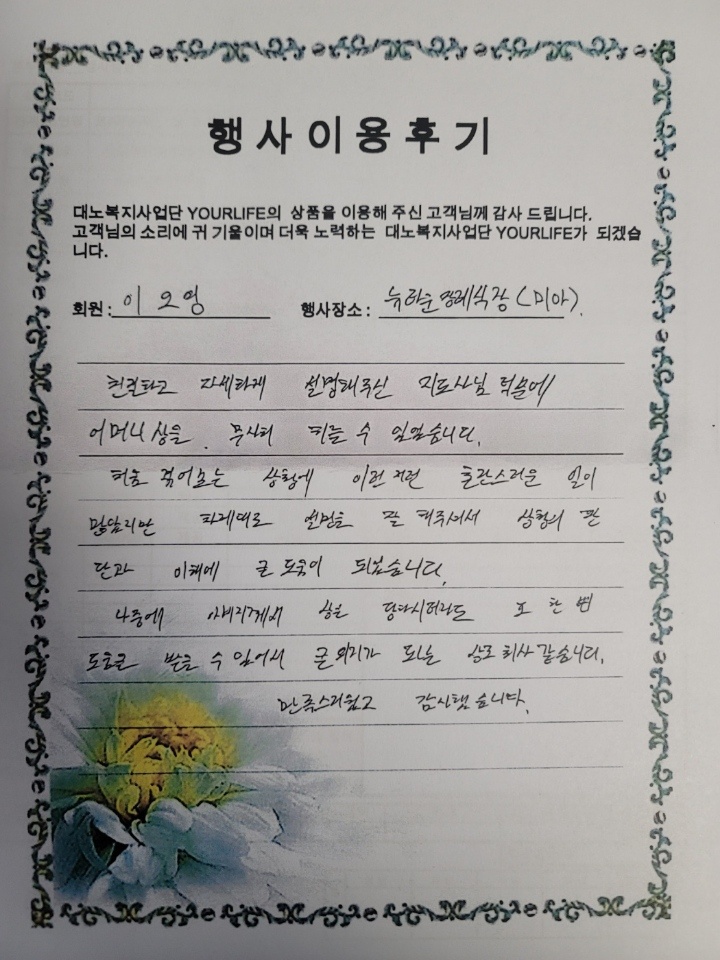 행사이용후기
대노복지사업단 YOURLIFE의 상품을 이용해 주신 고객님께 감사 드립니다.
고객님의 소리에 귀 기울이며 더욱 노력하는 대노복지사업단 YOURLIFE가 되겠습
니다.
회원 : 이오영 행사장소 : 뉴타운장례식장(미아).
친절하고 자세하게 설명해주신 지도사님 덕분에
어머니 상을 무사히 치를 수 있었습니다.
처음 겪어보는 상황에 이런저런 혼란스러운 일이
많았지만 차례대로 설명을 잘 해주셔서 상황의 판
단과 이해에 큰 도움이 되었습니다.
나중에 아버지께서 상을 당하시더라도 또 한 번
도움을 받을 수 있어서 큰 의지가 되는 상조회사 같습니다.
만족스러웠고 감사했습니다.